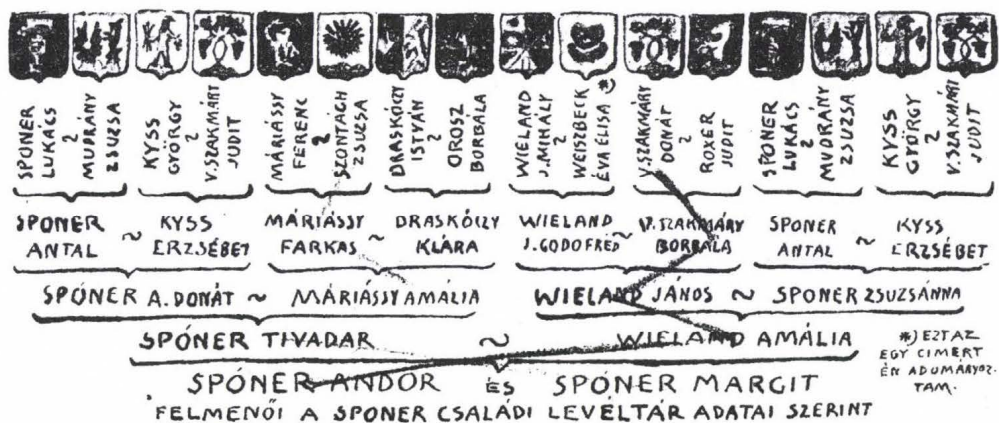 SPONER
LUKÁCS
~
MUDRÁNY
ZSUZSA
KYSS
GYÖRGY
~
V.SZAKMÁRY
JUDIT
MÁRIÁSSY
FERENC
~
SZONTÁGH
ZSUZSA
DRASKÓCZY
ISTVÁN
~
OROSZ
BORBÁLA
WIELAND
J.MIHÁLY
~
WEISZBECK *)
ÉVA ELISA
V.SZAKMÁRY
DONÁT
~
ROXER
JUDIT
SPONER
LUKÁCS
~
MUDRÁNY
ZSUZSA
KYSS
GYÖRGY
~
V.SZAKMÁRI
JUDIT
SPONER ~ KYSS
ANTAL ERZSÉBET
MÁRIÁSSY ~ DRASKÓCZY
FARKAS KLÁRA
WIELAND ~ V.SZAKMÁRY
J.GODOFRED BORBÁLA
SPONER ~ KYSS
ANTAL ERZSÉBET
SPÓNER A.DONÁT ~ MÁRIÁSSY AMÁLIA
WIELAND JÁNOS ~ SPONER ZSUZSÁNNA
SPÓNER TIVADAR ~ WIELAND AMÁLIA
*) EZT AZ
EGY CIMERT
ÉN ADOMÁNYOZ-
TAM.
SPÓNER ANDOR ÉS SPÓNER MARGIT
FELMENŐI A SPONER CSALÁDI LEVÉLTÁR ADATAI SZERINT